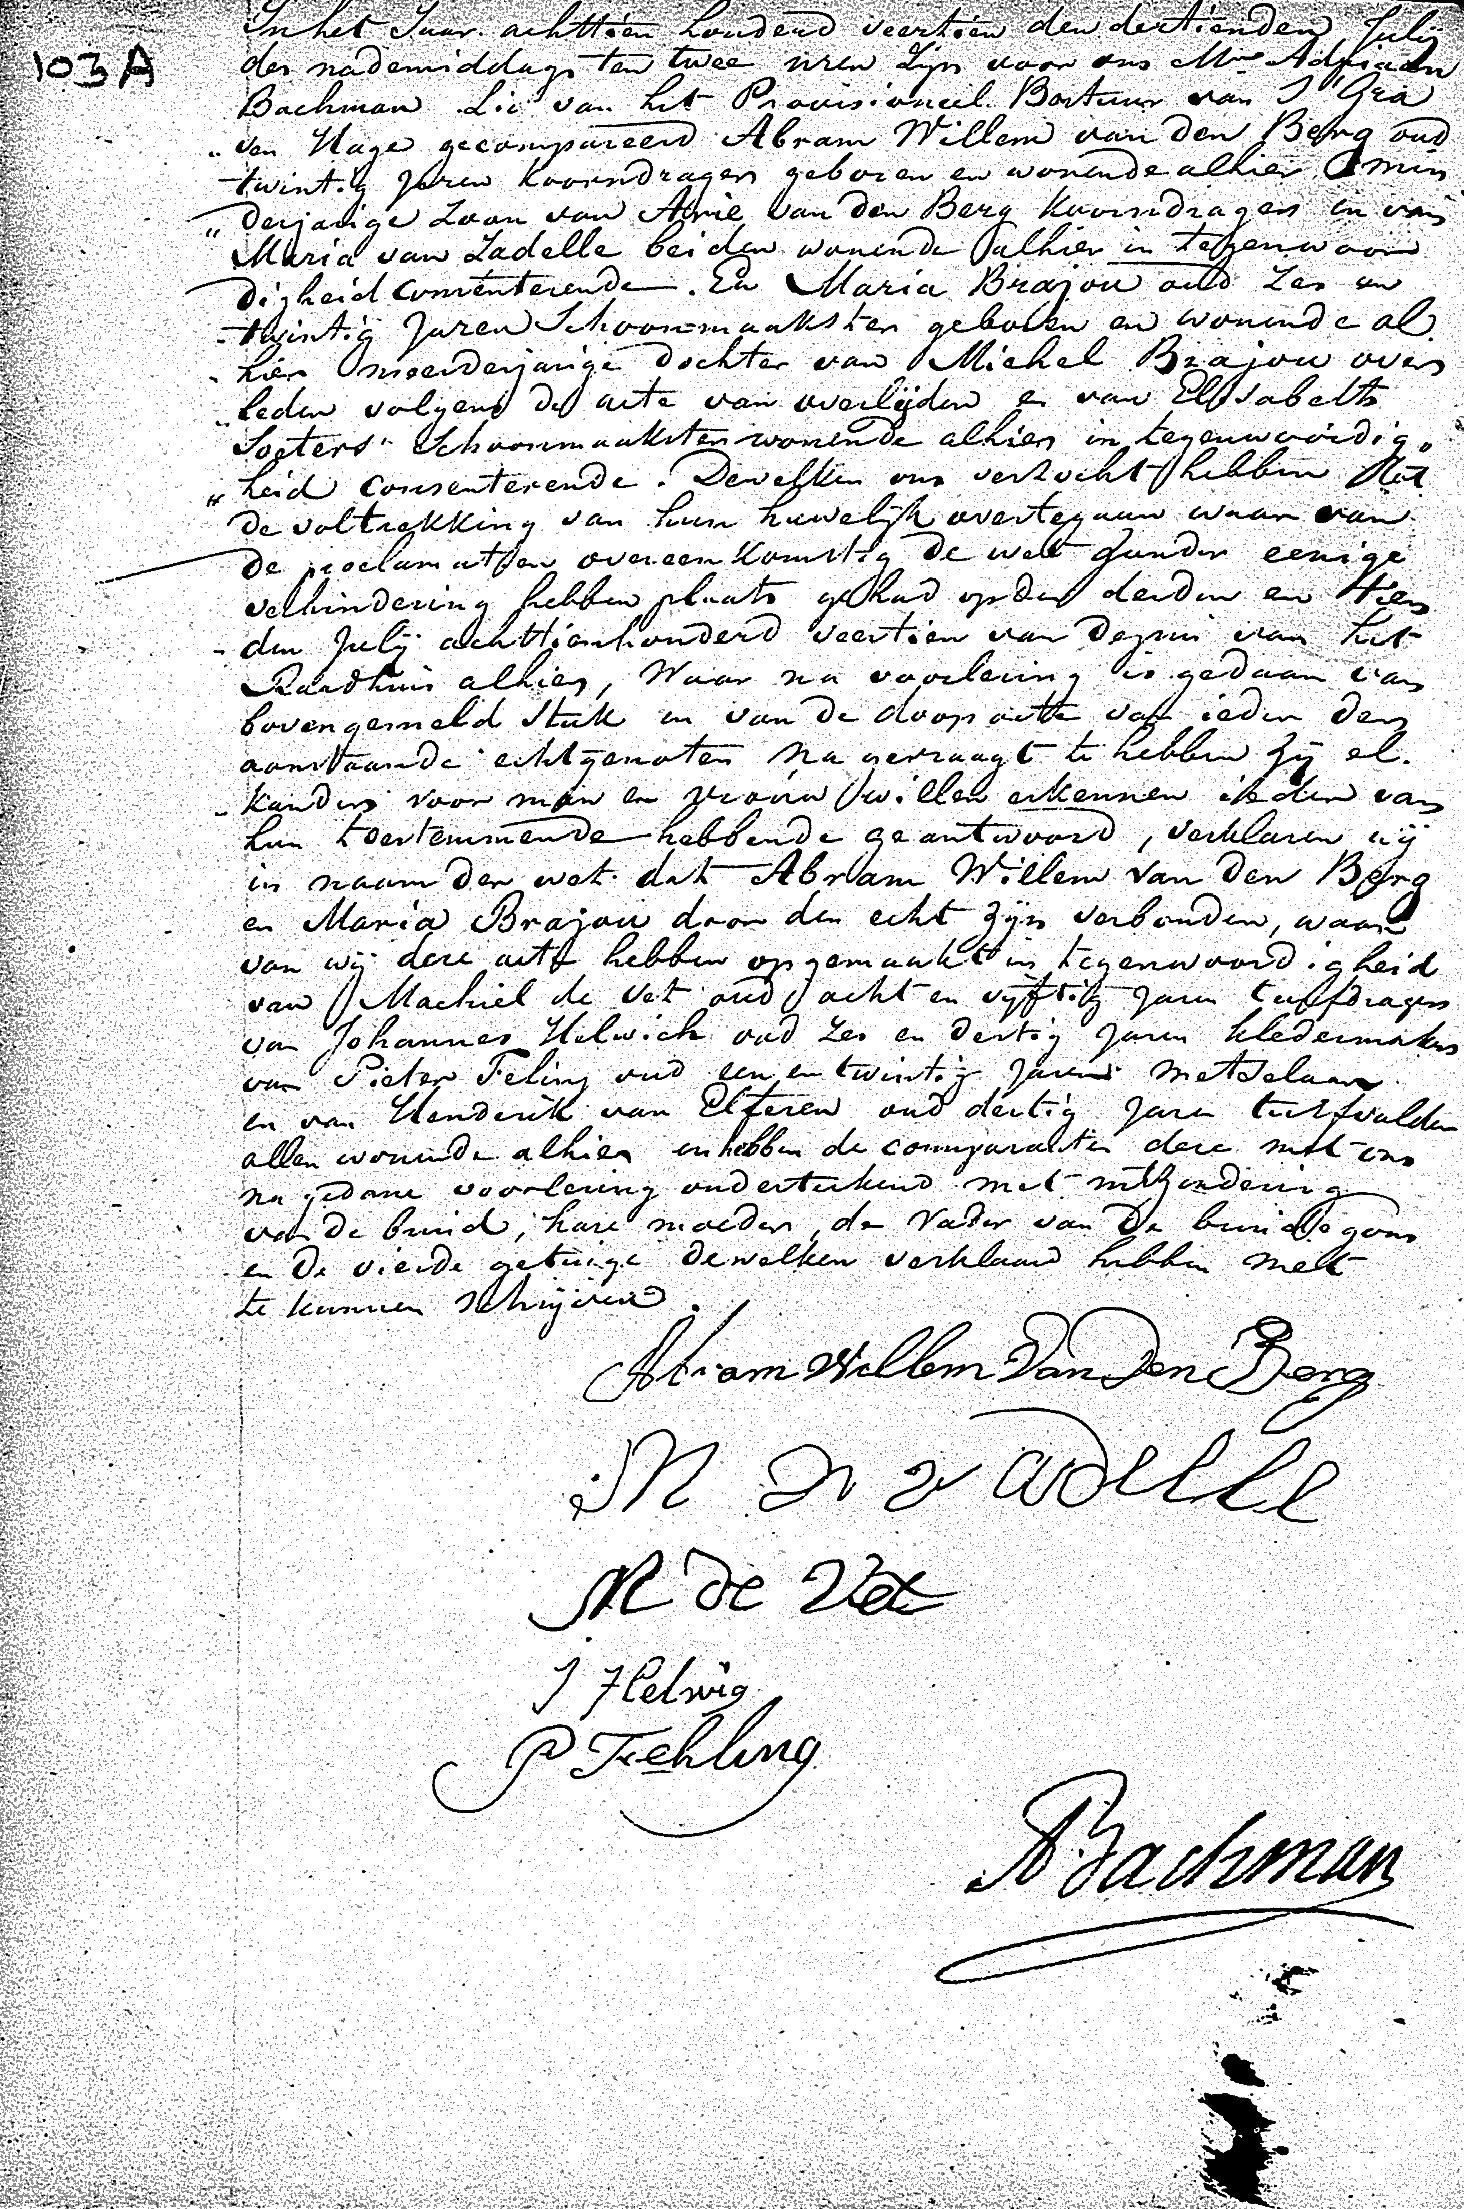 103A
In het Jaar achttien honderd veertien den dertienden Julij
des nademiddags ten twee uren Zijn voor ons Mr Adriaan
Bachman Lid van het Provisioneel Bestuur van S'Gra
„ven Hage gecompareerd Abram Willem van den Berg oud
twintig Jaren koorndrager geboren en wonende alhier min
„derjarige Zoon van Arie van den Berg koorndrager en van
Maria van Zadelle beiden wonende alhier in tegenwoor
digheid consenterende. En Maria Brajou oud Zes en
twintig Jaren Schoonmaakster geboren en wonende al
hier meerderjarige dochter van Michel Brajou over
„leden volgens de acte van overlijden en van Elisabeth
Soeters Schoonmaakster wonende alhier in tegenwoordig„
„heid consenterende. Dewelken ons verzocht hebben tot
de voltrekking van hun huwelijk overtegaan waar van
de proclamatien overeenkomstig de wet zonder eenige
verhindering hebben plaats gehad op den derden en tien
den Julij achttienhonderd veertien van de puij van het
Raadhuis alhier, Waar na voorlezing is gedaan van
bovengemeld stuk en van de doop acte van ieder der
aanstaande echtgenoten na gevraagt te hebben Zij el.
kanders voor man en vrouw willen erkennen ieder van
hun toestemmende hebbende geantwoord, verklaren wij
in naam der wet dat Abram Willem van den Berg
en Maria Brajou door den echt Zijn verbonden, waar
van wij deze acte hebben opgemaakt in tegenwoordigheid
van Machiel de Vet oud acht en vijftig Jaren turfdrager
van Johannes Helwich oud Zes en dertig Jaren kledermaker
van Pieter Feling oud een en twintig Jaren metselaar
en van Henderik van Elferen oud dertig Jaren turfvulder
allen wonende alhier en hebben de comparanten deze met ons
na gedane voorlezing onderteekend met uitzondering
van de bruid, hare moeder, de Vader van de bruidegom
en de vierde getuige dewelken verklaard hebben niet
te kunnen schrijven.
Abram Willem Van Den Berg
M v Zadelle
M De Vet
J Helwig
P Fehling
A Bachman